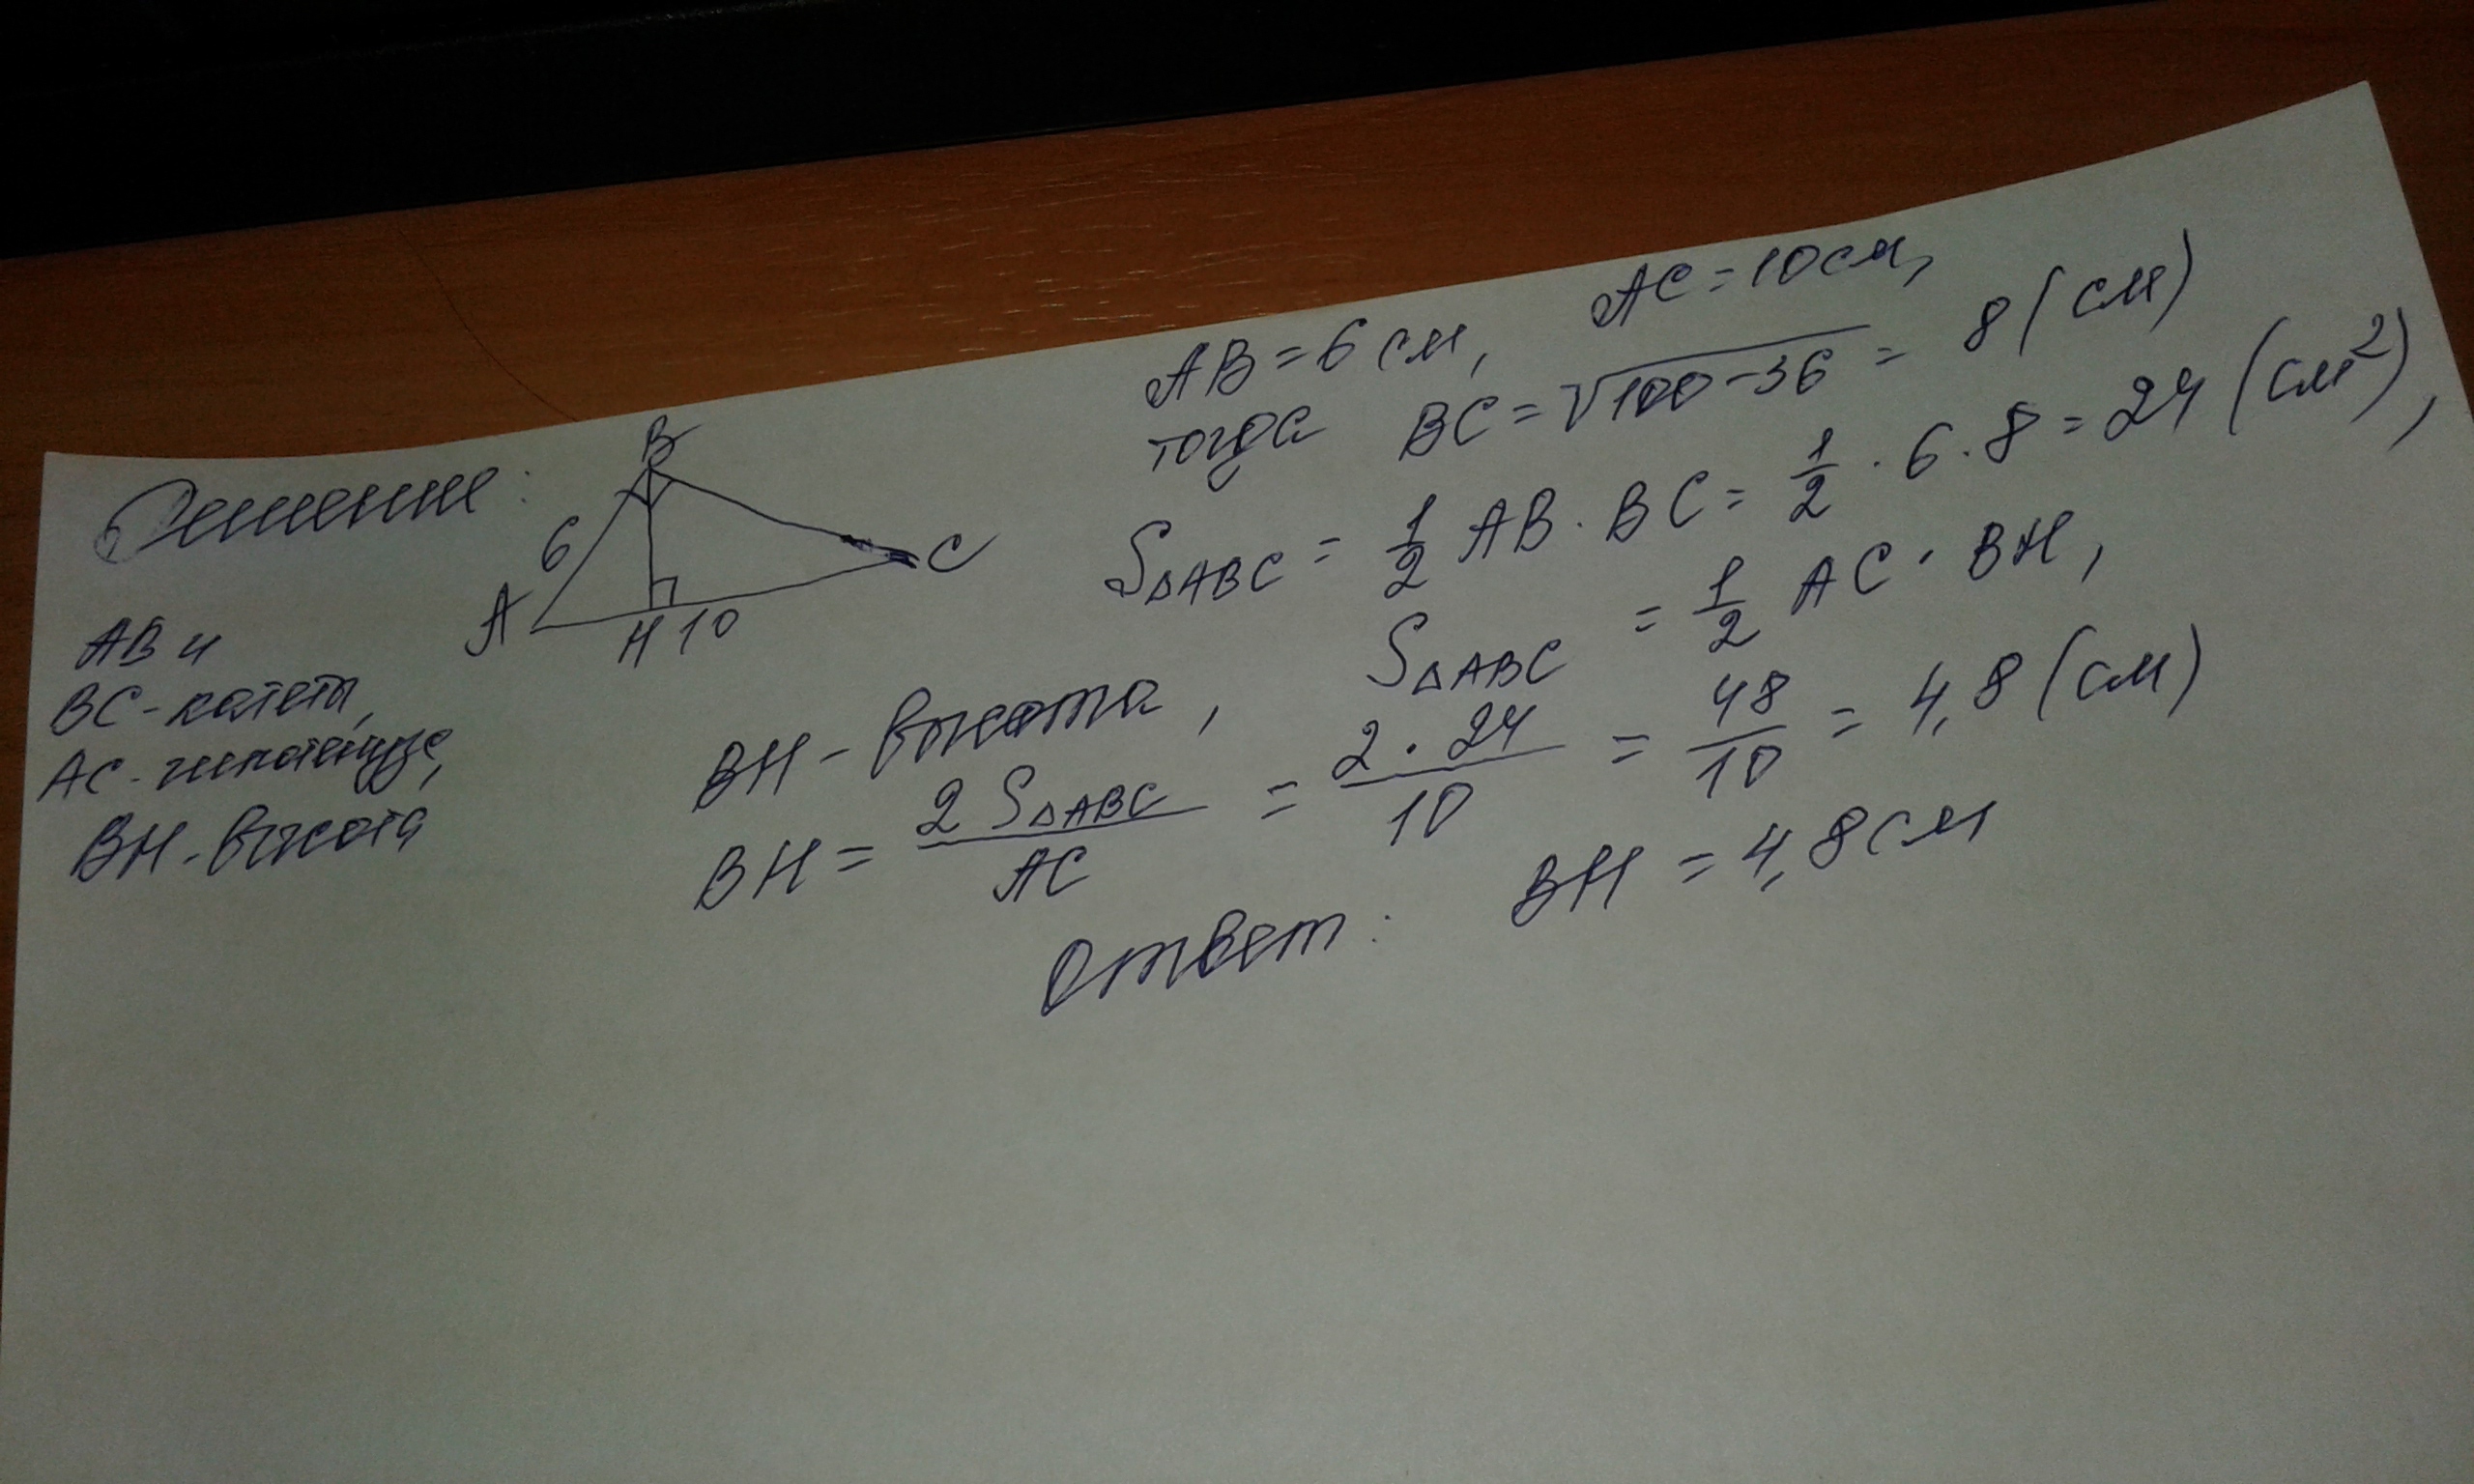 Решение:
B
6
A
C
H 10
AB и
BC - катеты,
AC - гипотенуза,
BH - высота
AB = 6 см, AC = 10 см,
тогда BC = √100-36 = 8 (см)
S△ABC = 1/2 AB · BC = 1/2 · 6 · 8 = 24 (см²),
BH - высота, S△ABC = 1/2 AC · BH,
BH = 2 S△ABC / AC = 2 · 24 / 10 = 48/10 = 4,8 (см)
Ответ: BH = 4,8 см